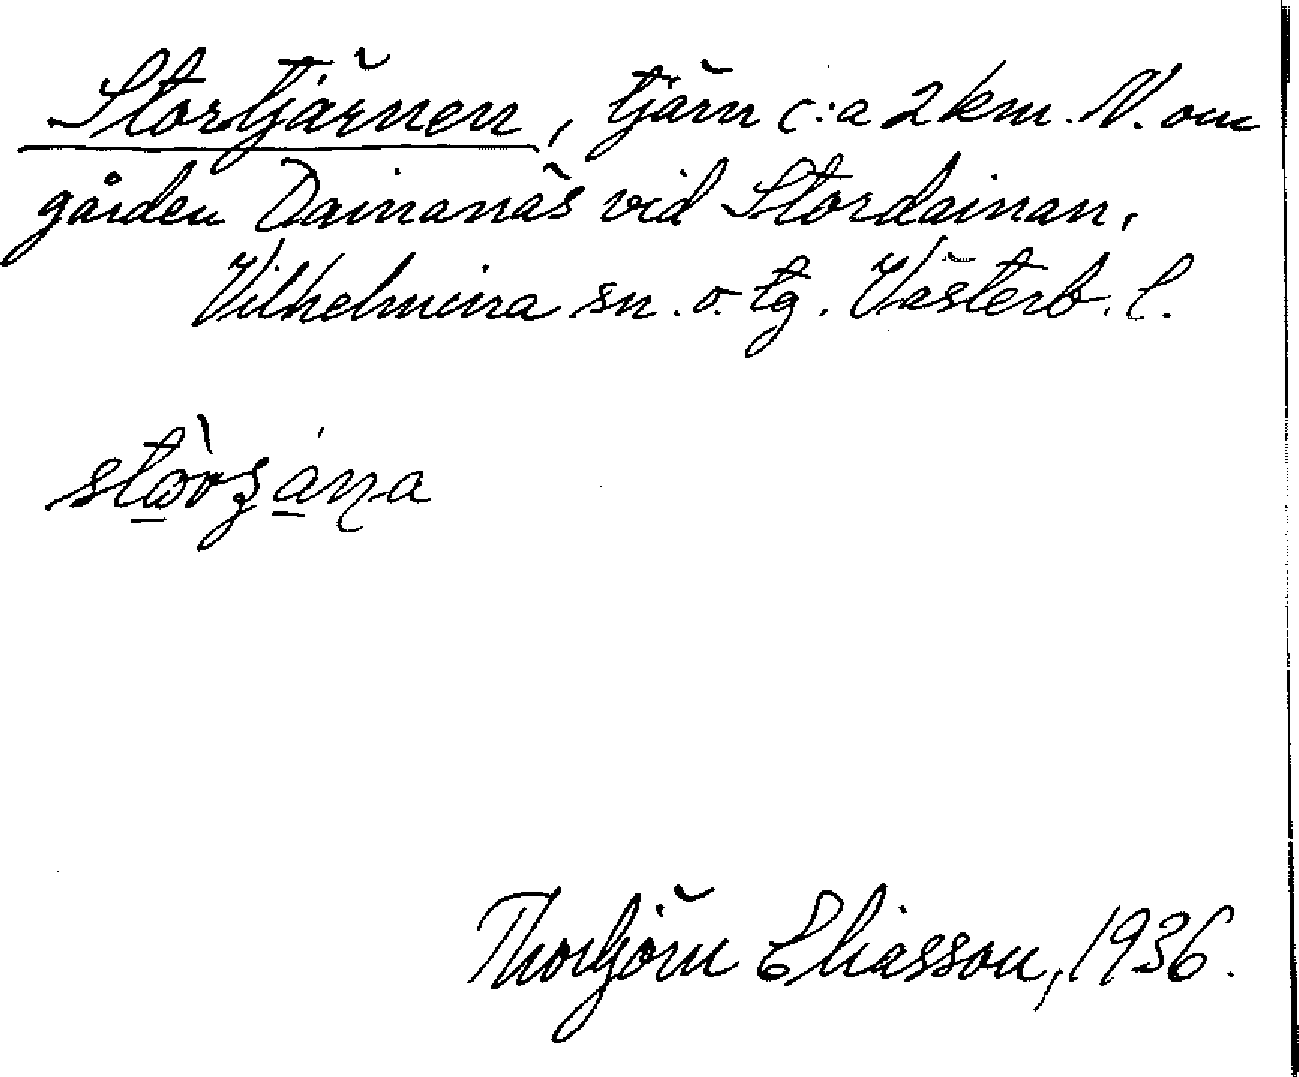 Stortjärnen, tjärn c:a 2 km. N. om
gården Dainanäs vid Stordainan,
Vilhelmina sn. o. tg. Västerb. l.
Thorbjörn Eliasson, 1936.